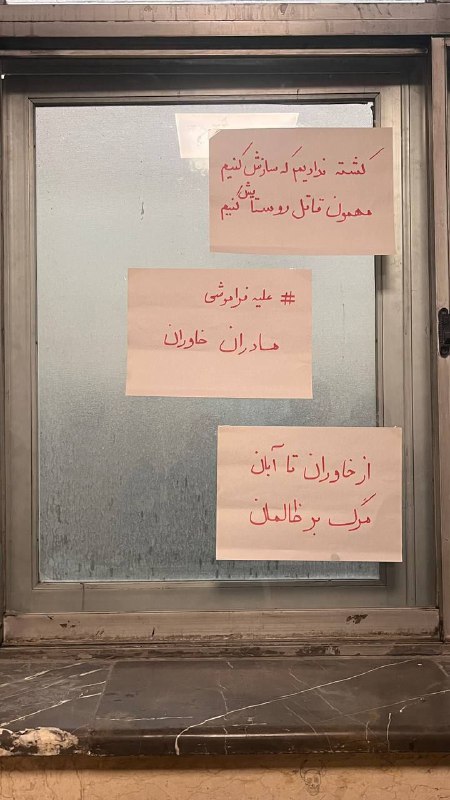 کشته ندادیم که سازش کنیم
مهمون قاتل رو ستایش کنیم
# علیه فراموشی
مادران خاوران
از خاوران تا آبان
مرگ بر ظالمان